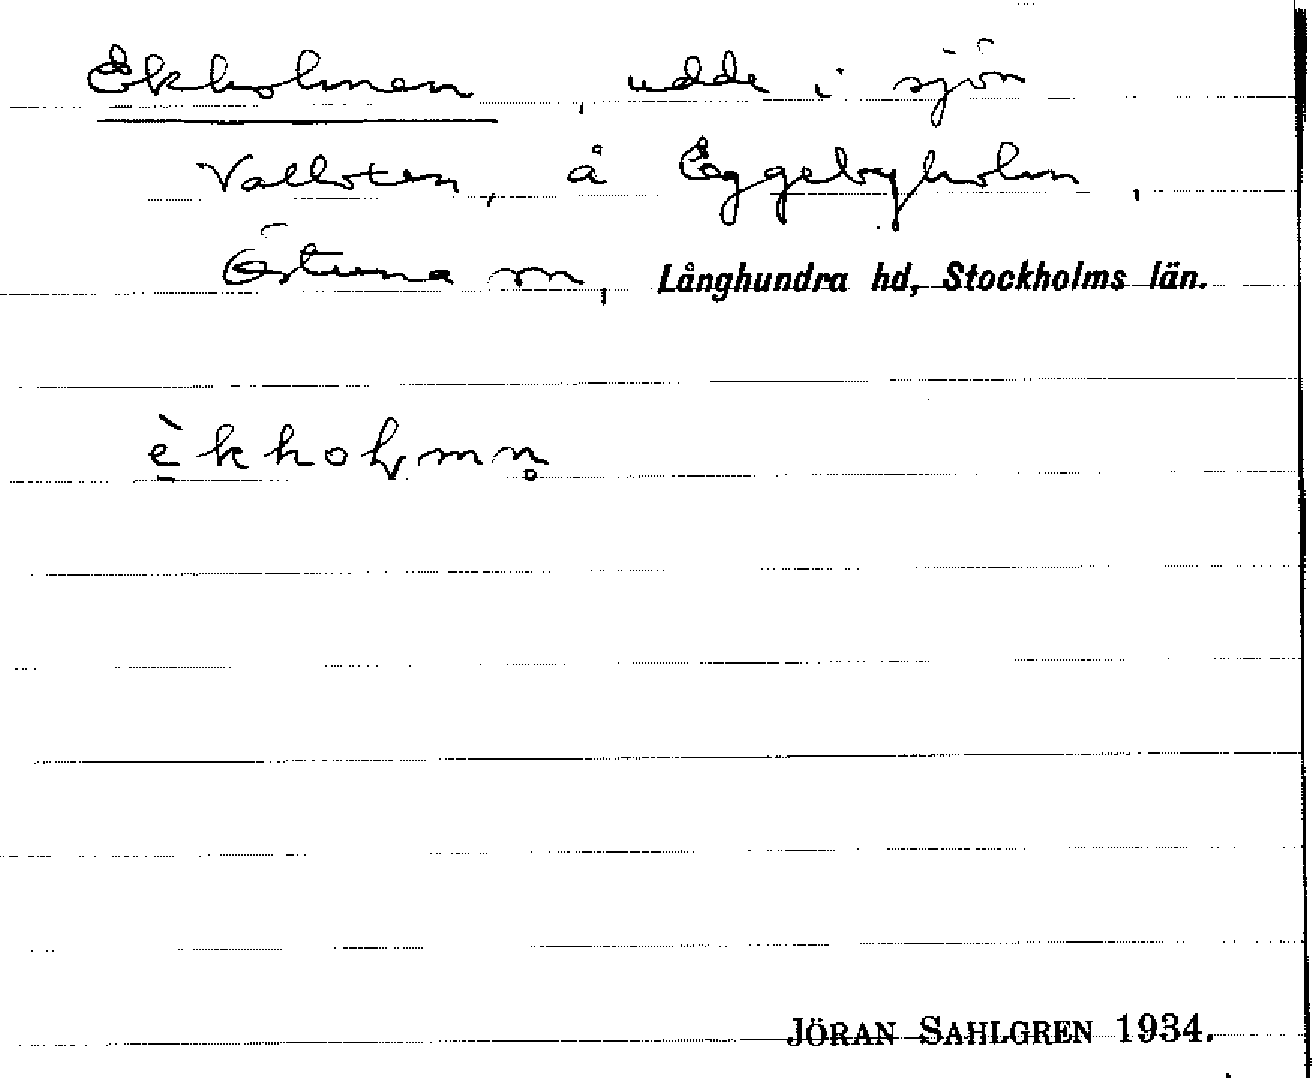 Ekholmen, udde i sjön
Valloxen, å Eggebyholm,
Östuna sn, Långhundra hd, Stockholms län.
è̠kholmn̥
JÖRAN SAHLGREN 1934.